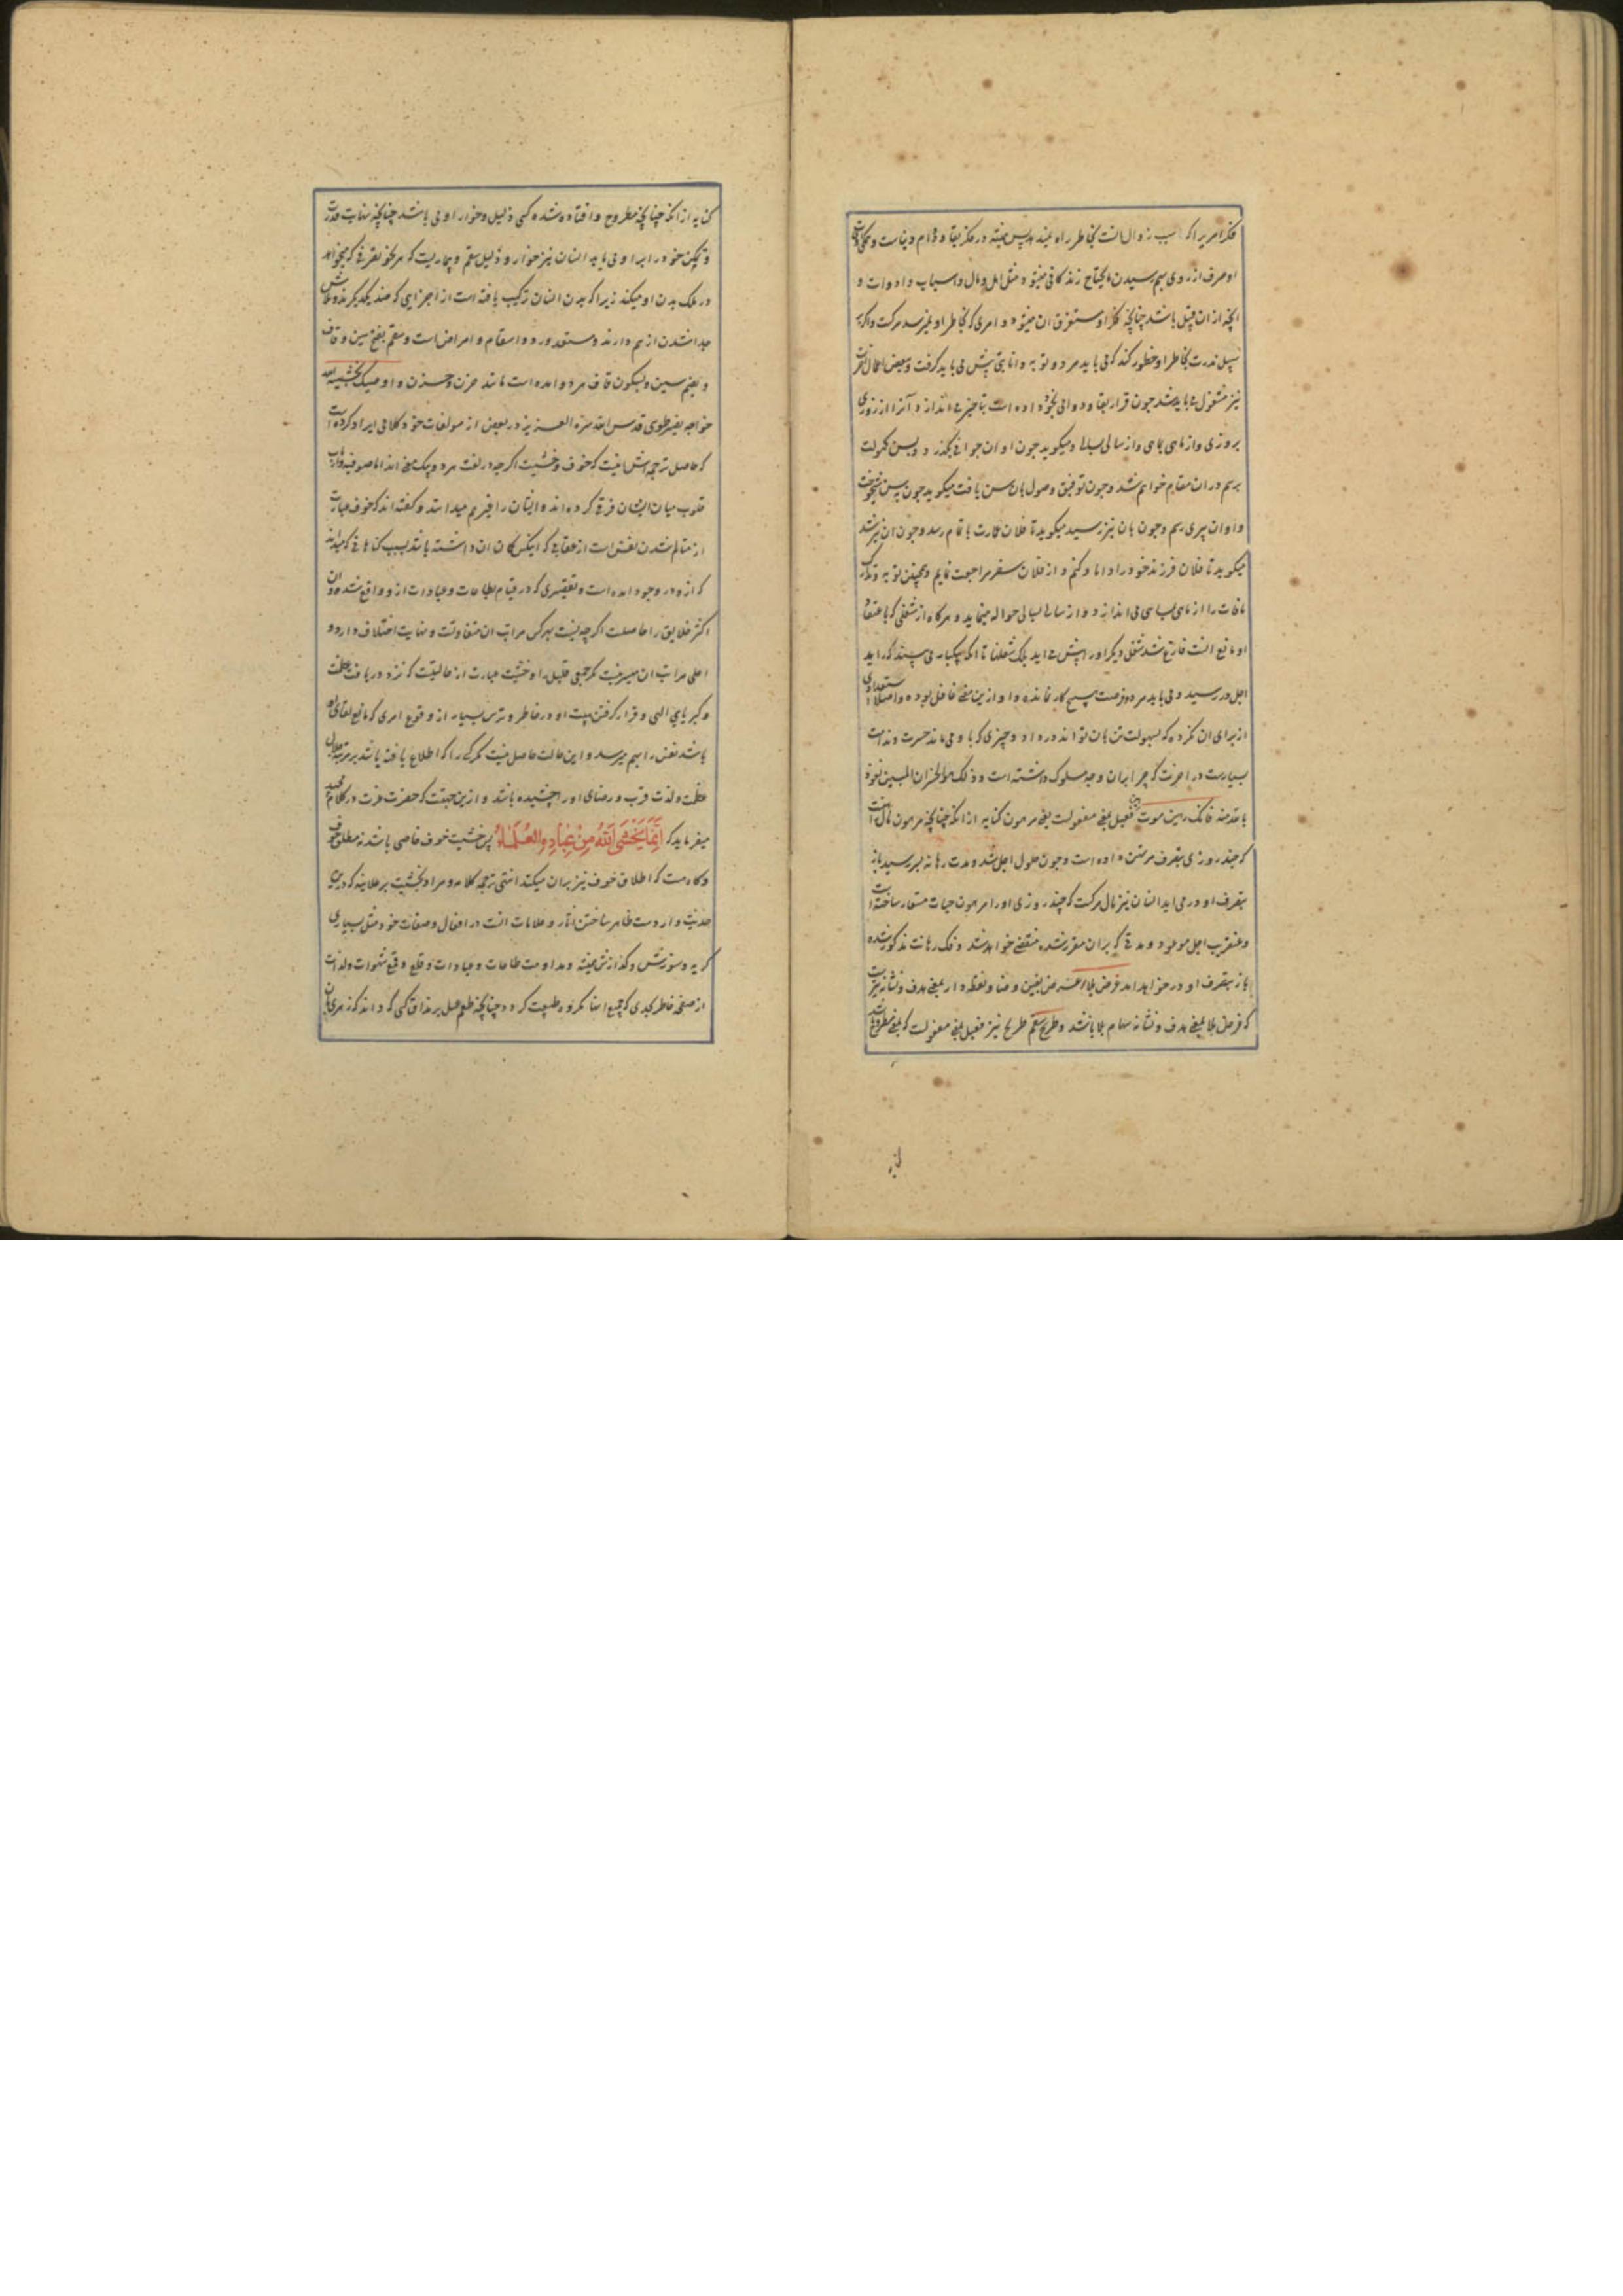 فکر امریرا که سبب زوال انست بخاطر راه نمیدهد پس همیشه در فکر بقا و دوام دنیاست و همگی
او صرف از روی بهم رسیدن مایحتاج زندکانی میشود مثل اهل و مال و اسباب و ادوات و
انچه از ان قبیل باشد چنانچه فکر او مستغرق ان میشود و امری که بخاطر او نمیرسد مرکست و اگر بر
سبیل ندرت بخاطر او خطور کند که می باید مرد و توبه و انابتی پیش می باید کرفت و بعض اعمال
نیز مشغول می باید شد چون قرار بقا و دوامی بخود داده است بتاخیر می اندازد و آنرا از روزی
بروزی و از ماهی بماهی و از سالی بسالی و میکوید چون اوان جوانی بگذرد و بسن کهولت
برسم در ان مقام خواهم شد و چون توفیق وصول بان سن یافت میکوید چون بسن شیخوخت
و اوان پیری رسم و چون بان نیز رسید میکوید تا فلان عمارت باتمام رسد و چون ان نیز شد
میکوید تا فلان فرزند خود را داماد کنم و از فلان سفر مراجعت نمایم و همچنین توبه و تدارک
مافات را از ماهی بماهی می اندازد و از سالی بسالی حواله مینماید و هرکاه از شغلی که باعتقاد
او مانع انست فارغ شد شغلی دیکر او را پیش می اید بلک شغلها تا انکه بیکبار می بیند که راید
اجل در رسید و می باید مرد و فرصت هیچ کار نمانده و او ازین معنی غافل بوده و اصلا استعدادی
از برای ان نکرده که بسهولت تن بان تواند در داد و چیزی که با او می ماند حسرت و ندامت
بسیارست در اخرت که چرا بران وجه سلوک داشته است و ذلک هو الخسران المبین نعوذ
بالله منه فانک رهین موت رهین فعیل بمعنی مفعولست یعنی مرهون کنایه از انکه چنانچه مرهون مال است
که چند روزی بتصرف مرتهن داده است و چون حلول اجل شد و مدت رهانه بسر رسید باز
بتصرف او در می اید انسان نیز مال مرکست که چند روزی او را مرهون حیات مستعار ساخته است
و عنقریب اجل موعود و مدتی که بران مقرر شده منقضی خواهد شد و فک رهانت مذکور شده
باز بتصرف او در خواهد امد غرض بلاء غرض بغین و ضاد نقطه دار بمعنی هدف و نشانه تیرست
که غرض بلا بمعنی هدف و نشانه سهام بلا باشد و طریح سقم طریح نیز فعیل بمعنی مفعولست که بمعنی مطروح باشد
کنایه از انکه چنانچه مطروح و افتاده شده کسی ذلیل و خوار او می باشد چنانچه نهایت قدرت
و تمکین خود را برا و می یابد انسان نیز خوار و ذلیل سقم و بیماریست که هر نحو تصرفی که میخواهد
در ملک بدن او میکند زیرا که بدن انسان ترکیب یافته است از اجزایی که ضد یکدیکرند و تلاش
جدا شدن از هم دارند و مستعد ورود اسقام و امراض است و سقم بفتح سین و قاف
و بضم سین و بسکون قاف هر دو امده است مانند حزن و حزن و اوصیک بخشیة الله
خواجه نصیر طوسی قدس الله سره العزیز در بعض از مولفات خود کلامی ایراد کرده است
که حاصل ترجمه اش اینست که خوف و خشیت اگرچه در لغت هر دو بیک معنی اند اما صوفیه و ارباب
قلوب میان ایشان فرقی کرده اند و ایشان را غیر هم میدانند و کفته اند که خوف عبارت
از متالم شدن نفس است از عقابی که اینکس کمان ان داشته باشد بسبب کناهانی که میداند
که ازو در وجود امده است و تقصیری که در قیام بطاعات و عبادات ازو واقع شده و ان
اکثر خلایق را حاصلست اکرچه نسبت بهرکس مراتب ان متفاوتست و نهایت اختلاف دارد و
اعلی مراتب ان میسر نیست مکر جمعی قلیل را و خشیت عبارت از حالتیست که نزد دریافت عظمت
و کبریای الهی و قرار کرفتن هیبت او در خاطر و ترس بسیار از وقوع امری که مانع لقای او
باشد نفس را بهم میرسد و این حالت حاصل نیست مکر کسی را که اطلاع یافته باشد بر مرتبه جلال
عظمت و لذت قرب و رضای او را چشیده باشد و ازین جهتست که حضرت عزت در کلام مجید
میفرماید که اِنَّمَا یَخْشَی اللهُ مِنْ عِبَادِهِ الْعُلَمَاءُ پس خشیت خوف خاصی باشد نه مطلق خوف
و کاه هست که اطلاق خوف نیز بران میکنند انتهی ترجمه کلامه و مراد بخشیت بر علانیه که درین
حدیث وارد است ظاهر ساختن اثار و علامات انست در افعال و صفات خود مثل بسیاری
کریه و سوزش و کدازش همیشه و مداومت طاعات و عبادات و قلع و قمع شهوات و لذات
از صفحه خاطر بحدی که جمیع انها مکروه طبیعت کردد چنانچه طعم عسل بر مذاق کسی که داند که زهری بان